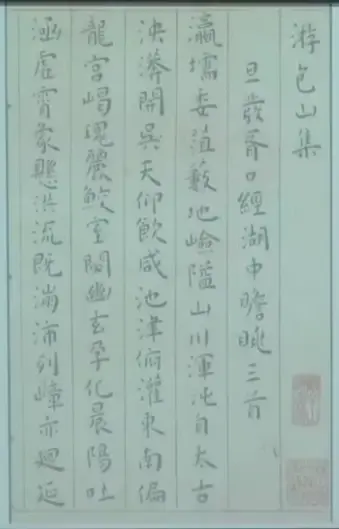 游包山集
旦發胥口經湖中瞻眺三首
瀛壖委藪地嶮隘山川渾沌自太古
泱漭開吳天仰飲咸池津俯灌東南偏
龍宮嵑瑰麗鮫室閟幽玄孕化晨陽吐
涵虛霄象懸洪流既滿沛列嶂亦迴延